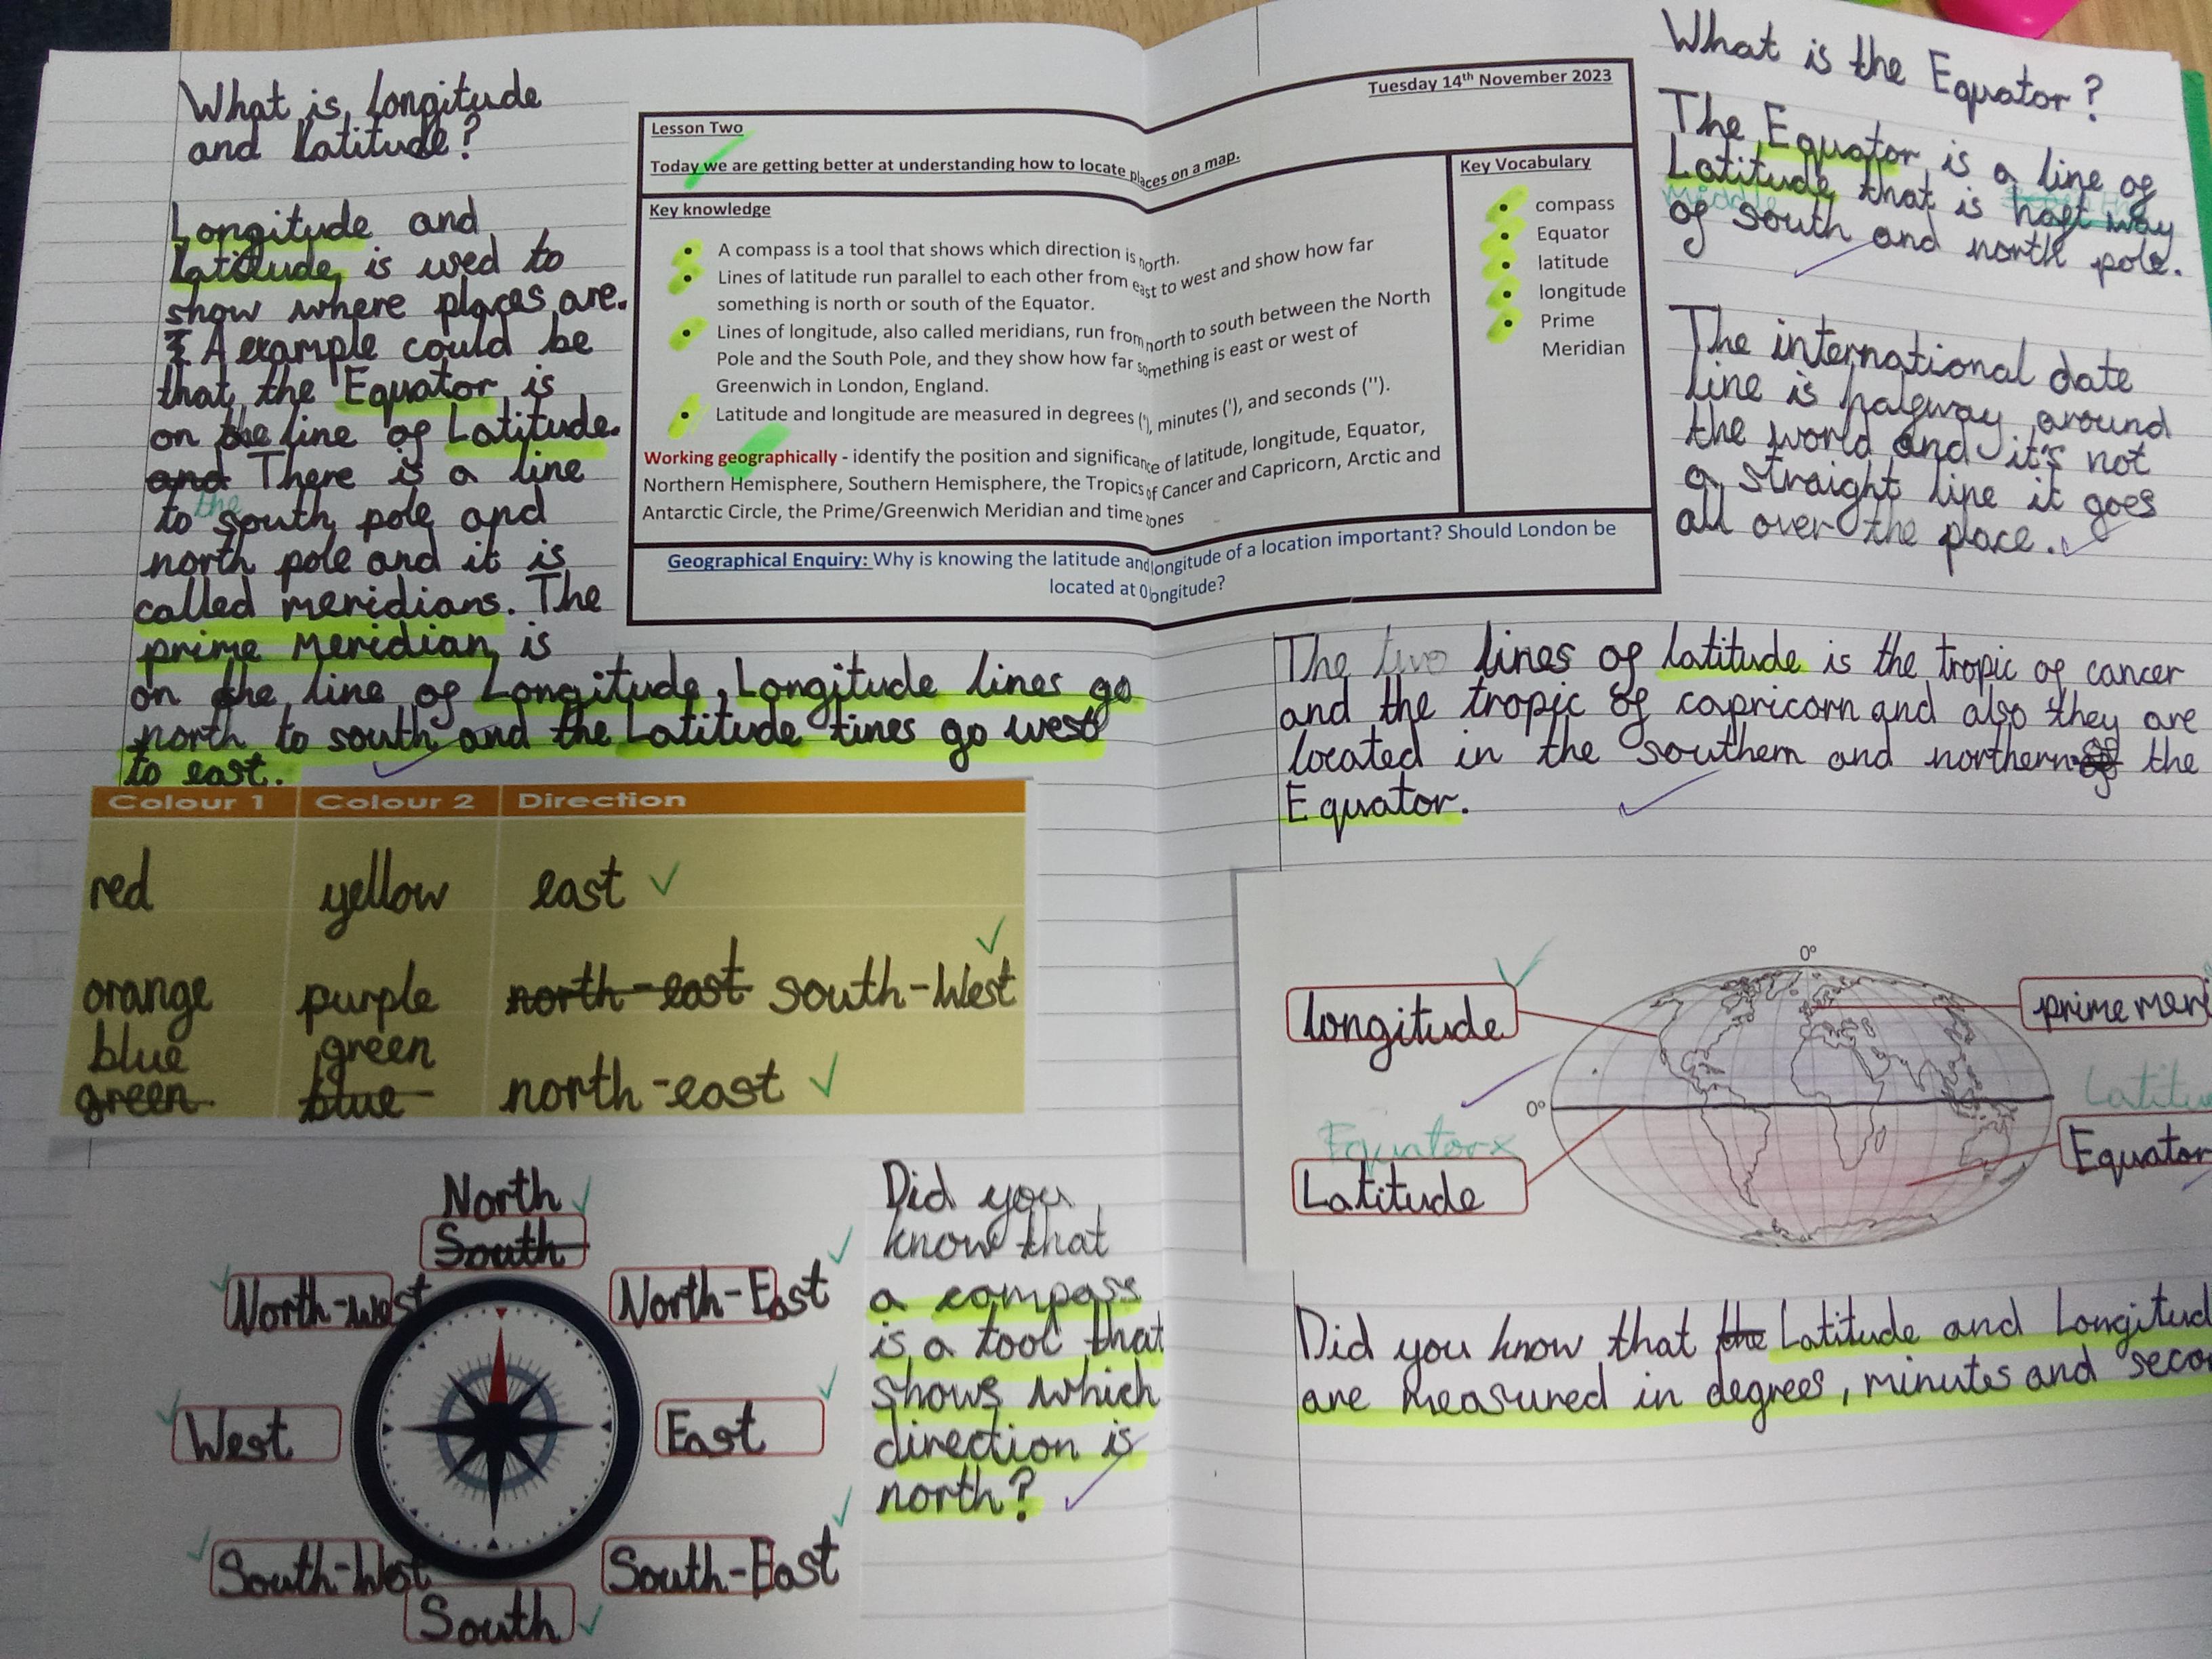 What is longitude
and Latitude?
Longitude and
Latitude, is used to
show where places are.
A example could be
that the Equator is
on the line of Latitude.
and There is a line
the
to south pole and
north pole and it is
called meridians. The
prime Meridian is
on the line of Longitude, Longitude lines go
north to south and the Latitude lines go west
to east.
Tuesday 14th November 2023
Lesson Two
Today we are getting better at understanding how to locate places on a map.
Key knowledge
A compass is a tool that shows which direction is north.
Lines of latitude run parallel to each other from east to west and show how far
something is north or south of the Equator.
Lines of longitude, also called meridians, run from north to south between the North
Pole and the South Pole, and they show how far something is east or west of
Greenwich in London, England.
Latitude and longitude are measured in degrees (°), minutes ('), and seconds ('').
Working geographically - identify the position and significance of latitude, longitude, Equator,
Northern Hemisphere, Southern Hemisphere, the Tropics of Cancer and Capricorn, Arctic and
Antarctic Circle, the Prime/Greenwich Meridian and time zones
Key Vocabulary
compass
Equator
latitude
longitude
Prime
Meridian
Geographical Enquiry: Why is knowing the latitude and longitude of a location important? Should London be
located at 0 longitude?
What is the Equator?
The Equator is a line of
Latitude that is half way
middle
of south and north pole.
The international date
line is halfway around
the world and it's not
a straight line it goes
all over the place.
The two lines of latitude is the tropic of cancer
and the tropic of capricorn and also they are
located in the southern and northern of the
Equator.
Colour 1 Colour 2 Direction
red yellow east
orange purple north-east south-West
blue green
green blue north-east
North
South
North-west
North-East
West
East
South-West
South-East
South
Did you
know that
a compass
is a tool that
shows which
direction is
north?
0°
longitude
prime meri
0°
Equator
Latitude
Latitu
Equator
Did you know that the Latitude and Longitud
are measured in degrees, minutes and seco